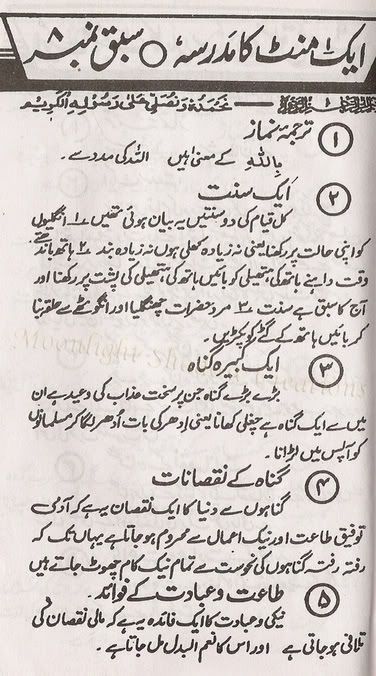 ایک ۱ منٹ کا مدرسہ ○ سبق نمبر ۸
نَحْمَدُہٗ وَنُصَلِّیْ عَلٰی رَسُوْلِہِ الْکَرِیْمِ
۱ ترجمۂ نماز
بِاللّٰہِ کے معنیٰ ہیں اللہ کی مدد سے ۔
۲ ایک سنت
کل قیام کی دو سنتیں یہ بیان ہوئی تھیں ۱؎ انگلیوں
کو اپنی حالت پر رکھنا یعنی نہ زیادہ کھلی ہوں نہ زیادہ بند ۲؎ ہاتھ باندھتے
وقت داہنے ہاتھ کی ہتھیلی کو بائیں ہاتھ کی ہتھیلی کی پشت پر رکھنا اور
آج کا سبق ہے سنت ۳؎ مرد حضرات چھنگلیا اور انگوٹھے سے حلقہ بنا
کر بائیں ہاتھ کے گٹے کو پکڑیں ۔
Moonlight Creations
۳ ایک کبیرہ گناہ
بڑے بڑے گناہ جن پر سخت عذاب کی وعید ہے ان
میں سے ایک گناہ ہے چغلی کھانا یعنی اِدھر کی بات اُدھر لگا کر مسلمانوں
کو آپس میں لڑانا ۔
۴ گناہ کے نقصانات
گناہوں سے دنیا کا ایک نقصان یہ ہے کہ آدمی
توفیق طاعت اور نیک اعمال سے محروم ہو جاتا ہے یہاں تک کہ
رفتہ رفتہ گناہوں کی نحوست سے تمام نیک کام چھوٹ جاتے ہیں
۵ طاعت و عبادت کے فوائد ۔
نیکی و عبادت کا ایک فائدہ یہ ہے کہ مالی نقصان کی
تلافی ہو جاتی ہے اور اس کا نعم البدل مل جاتا ہے ۔